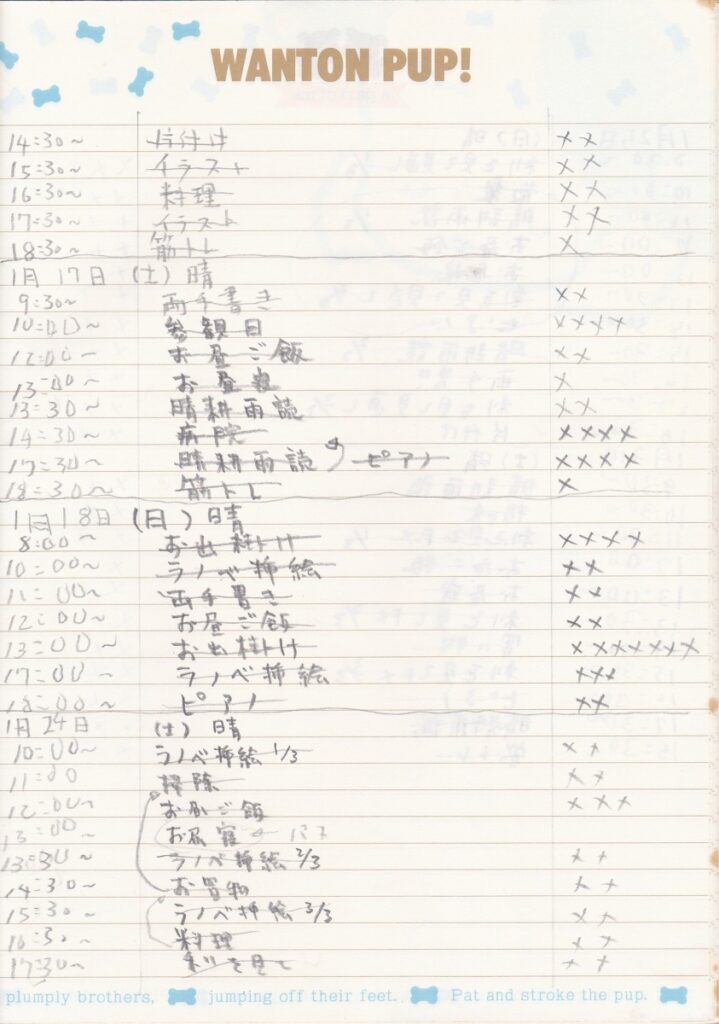 WANTON PUP!
14:30~ 片付け ××
15:30~ イラスト ××
16:30~ 料理 ××
17:30~ イラスト ××
18:30~ 筋トレ ×
1月17日 (土) 晴
9:30~ 両手書き ××
10:00~ 参観日 ××××
12:00~ お昼ご飯 ××
13:00~ お昼寝 ×
13:30~ 晴耕雨読 ××
14:30~ 病院 ××××
17:30~ 晴耕雨読 ピアノ ××××
18:30~ 筋トレ ×
1月18日 (日) 晴
8:00~ お出掛け ××××
10:00~ ラノベ挿絵 ××
11:00~ 両手書き ××
12:00~ お昼ご飯 ××
13:00~ お出掛け ×××××××
17:00~ ラノベ挿絵 ×××
18:00~ ピアノ ××
1月24日 (土) 晴
10:00~ ラノベ挿絵 1/3 ××
11:00 掃除 ××
12:00~ お昼ご飯 ×××
13:00 お昼寝
13:30~ ラノベ挿絵 2/3 ××
14:30~ お買物 ××
15:30~ ラノベ挿絵 3/3 ××
16:30~ 料理 ××
17:30~ を見て ××
plumply brothers, jumping off their feet. Pat and stroke the pup.